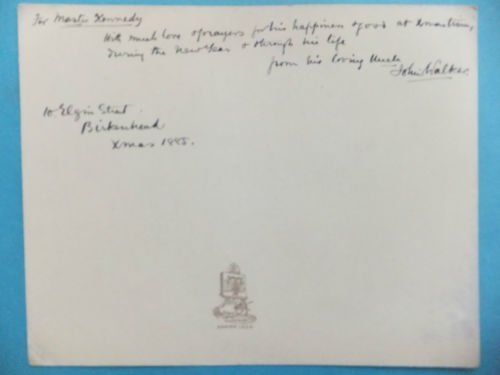 For Master Kennedy
With much love & prayers for his happiness & good at Xmastime,
during the New Year & through his life
from his loving Uncle
John Walker.
10 Elgin Street.
Birkenhead
Xmas 1885.